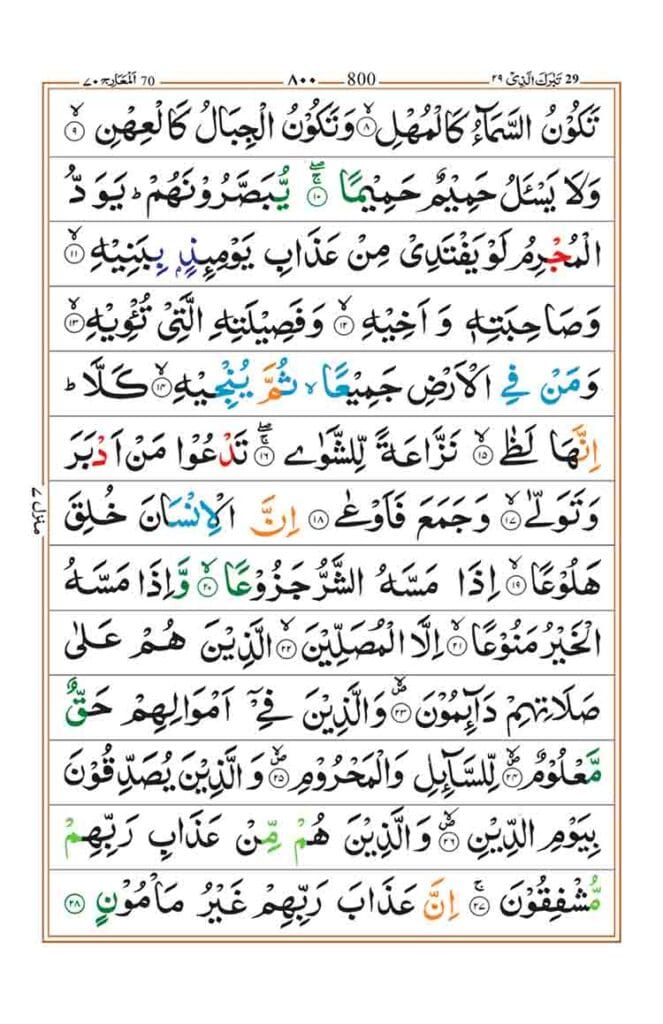 29 تَبٰرَكَ الَّذِیْ ٢٩ 800 ٨٠٠ 70 اَلْمَعَارِج ٧٠
تَكُوْنُ السَّمَآءُ كَالْمُهْلِ ۙ۸ وَتَكُوْنُ الْجِبَالُ كَالْعِهْنِ ۙ۹
وَلَا یَسْـَٔلُ حَمِیْمٌ حَمِیْمًا ۚۖ۱۰ یُّبَصَّرُوْنَهُمْ ؕ یَوَدُّ
الْمُجْرِمُ لَوْ یَفْتَدِیْ مِنْ عَذَابِ یَوْمِىِٕذٍۭ بِبَنِیْهِ ۙ۱۱
وَصَاحِبَتِهٖ وَ اَخِیْهِ ۙ۱۲ وَفَصِیْلَتِهِ الَّتِیْ تُـْٔوِیْهِ ۙ۱۳
وَمَنْ فِی الْاَرْضِ جَمِیْعًا ۙ ثُمَّ یُنْجِیْهِ ۙ۱۴ كَلَّا ؕ
اِنَّهَا لَظٰی ۙ۱۵ نَزَّاعَةً لِّلشَّوٰی ۚۖ۱۶ تَدْعُوْا مَنْ اَدْبَرَ
وَتَوَلّٰی ۙ۱۷ وَجَمَعَ فَاَوْعٰی ۱۸ اِنَّ الْاِنْسَانَ خُلِقَ
هَلُوْعًا ۙ۱۹ اِذَا مَسَّهُ الشَّرُّ جَزُوْعًا ۙ۲۰ وَّاِذَا مَسَّهُ
الْخَیْرُ مَنُوْعًا ۙ۲۱ اِلَّا الْمُصَلِّیْنَ ۙ۲۲ الَّذِیْنَ هُمْ عَلٰی
صَلَاتِهِمْ دَآىِٕمُوْنَ ۪ۙ۲۳ وَالَّذِیْنَ فِیْۤ اَمْوَالِهِمْ حَقٌّ
مَّعْلُوْمٌ ۪ۙ۲۴ لِّلسَّآىِٕلِ وَالْمَحْرُوْمِ ۪ۙ۲۵ وَالَّذِیْنَ یُصَدِّقُوْنَ
بِیَوْمِ الدِّیْنِ ۪ۙ۲۶ وَالَّذِیْنَ هُمْ مِّنْ عَذَابِ رَبِّهِمْ
مُّشْفِقُوْنَ ۚ۲۷ اِنَّ عَذَابَ رَبِّهِمْ غَیْرُ مَاْمُوْنٍ ۲۸
منزل ٧